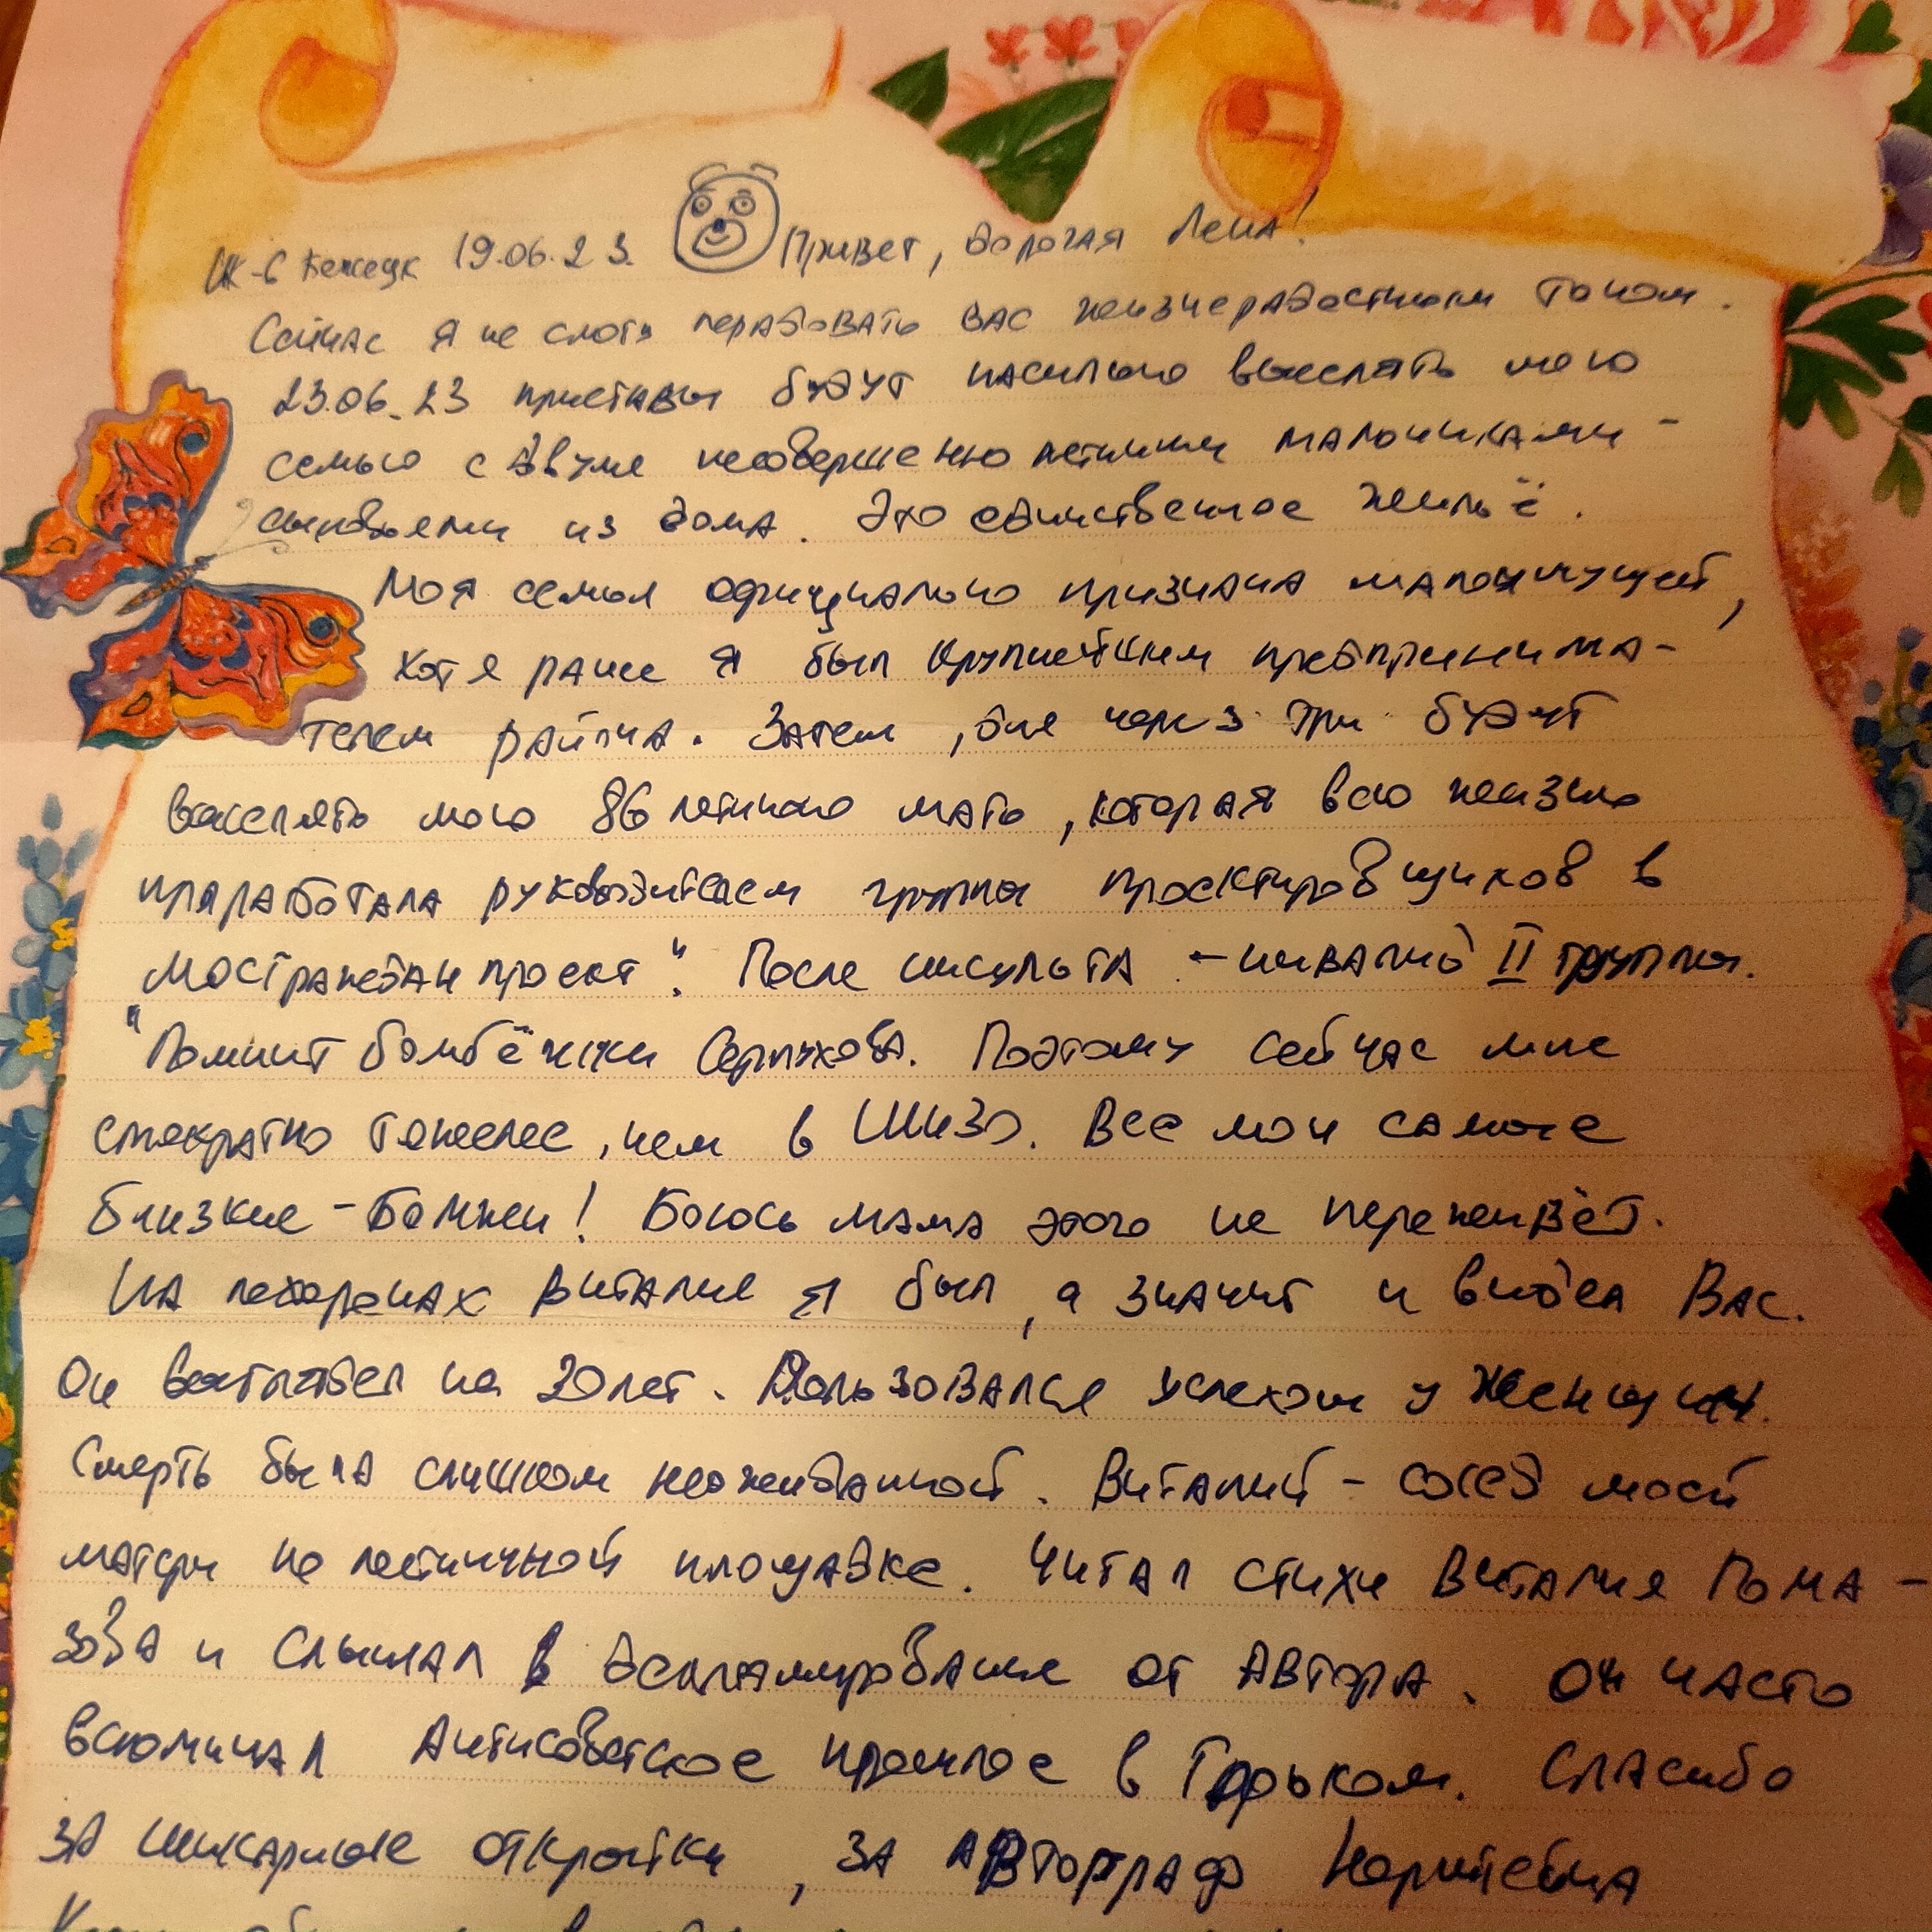 ИК-6 Бежецк 19.06.23. Привет, дорогая Лена!
Сейчас я не смогу порадовать Вас жизнерадостным тоном.
23.06.23 приставы будут насильно выселять мою
семью с двумя несовершеннолетними мальчиками-
сыновьями из дома. Это единственное жильё.
Моя семья официально признана малоимущей,
хотя ранее я был крупнейшим предпринима-
телем района. Затем, дня через три будут
выселять мою 86 летнюю мать, которая всю жизнь
проработала руководителем группы проектировщиков в
"Мостраждан проект". После инсульта - инвалид II группы.
Помнит бомбёжки Серпухова. Поэтому сейчас мне
стократно тяжелее, чем в ШИЗО. Все мои самые
близкие - Бомжи! Боюсь мама этого не переживёт.
На похоронах Виталия я был, а значит и видел Вас.
Он выглядел на 20 лет. Пользовался успехом у женщин.
Смерть была слишком неожиданной. Виталий - сосед моей
матери по лестничной площадке. Читал стихи Виталия Пома-
зова и слышал в декламировании от Автора. Он часто
вспоминал Антисоветское прошлое в Горьком. Спасибо
за шикарные открытки, за автограф Норштейна